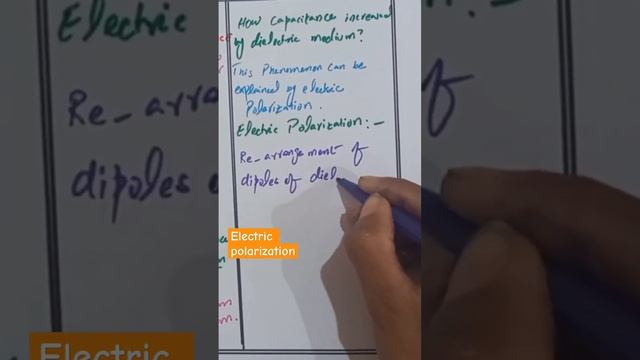 How capacitance increased
by dielectric medium?
This Phenomenon can be
explained by electric
Polarization.
Electric Polarization:-
Re-arrangement of
dipoles of diel
Electric
polarization